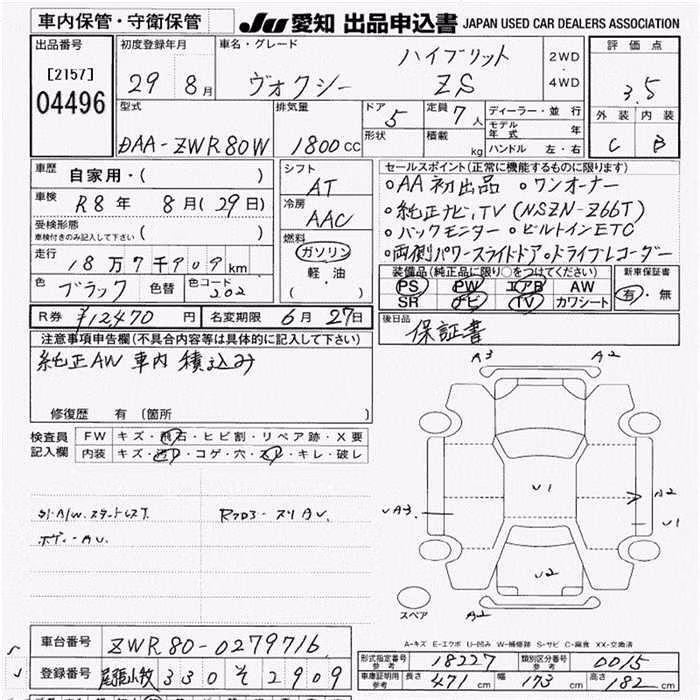 車内保管・守衛保管
JU 愛知 出品申込書 JAPAN USED CAR DEALERS ASSOCIATION
出品番号
[2157]
04496
初度登録年月
29年 8月
車名・グレード
ハイブリット
ヴォクシー ZS
2WD
4WD
評価点
3.5
外装 内装
C B
型式
DAA-ZWR80W
排気量
1800cc
ドア 5
定員 7人
形状
積載 kg
ディーラー・並行
モデル年式 年
ハンドル 左・右
車歴 自家用・( )
車検 R8年 8月(29日)
受検形態
車検付きのみ記入して下さい ( )
走行 18万7千909km
色 ブラック 色替 色コード 202
シフト
AT
冷房
AAC
燃料
ガソリン
軽・油
( )
セールスポイント(正常に機能するものに限ります)
○AA初出品 ○ワンオーナー
○純正ナビ,TV(NSZN-Z66T)
○バックモニター ○ビルトインETC
○両側パワースライドドア ○ドライブレコーダー
装備品(純正品に限り○をつけてください)
PS PW エアB AW
SR ナビ TV カワシート
新車保証書
有・無
R券 ¥12470円 名変期限 6月27日
後日品
保証書
注意事項申告欄(不具合内容等は具体的に記入して下さい)
純正AW 車内 積込み
修復歴 有(箇所 )
検査員
記入欄
FW キズ・飛石・ヒビ割・リペア跡・X要
内装 キズ・汚レ・コゲ・穴・スレ・キレ・破レ
A3 A2
U1
UA3
A2
U1
U2
A2
スペア
A-キズ E-エクボ U-凹み W-補修跡 S-サビ C-腐食 XX-交換済
車台番号 ZWR80-0279716
登録番号 尾張小牧 330 そ 2909
形式指定番号 参考 18227 類別区分番号 参考 0015
車庫証明用 参考 長さ 471cm 幅 173cm 高さ 182cm